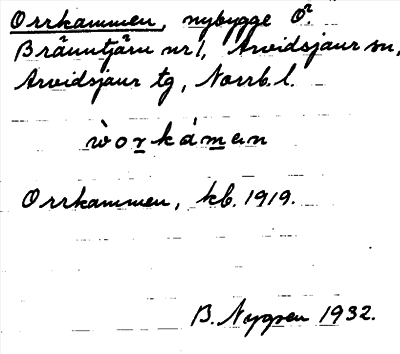 Orrkammen, nybygge Ö.
Bränntjärn nr 1, Arvidsjaur sn,
Arvidsjaur tg, Norrb. l.
Orrkammen, kb. 1919.
B. Nygren 1932.